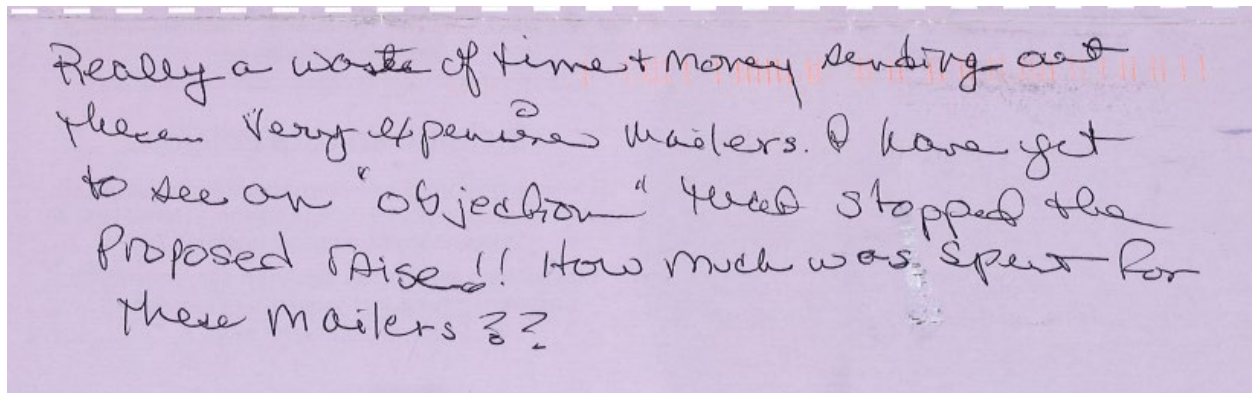 Really a waste of time + money sending out
these very expensive mailers. I have yet
to see an "objection" that stopped the
proposed raise!! How much was spent for
these mailers??